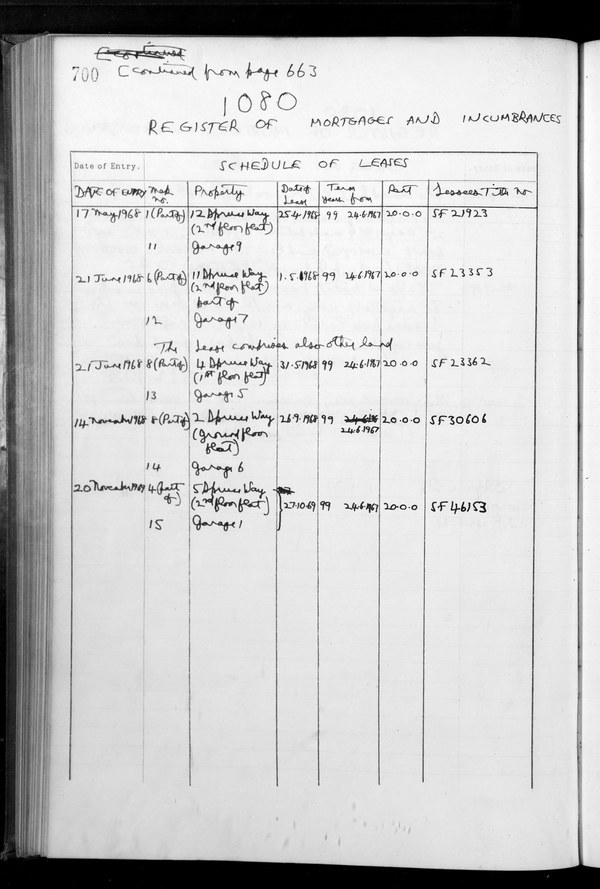 700 (continued from page 663
1080
REGISTER OF MORTGAGES AND INCUMBRANCES
Date of Entry. SCHEDULE OF LEASES
DATE OF ENTRY Map no. Property Date of Lease Term years from Rent Lessees Title No
17 May 1968 1 (Part of) 12 Spruce Way 25.4.1968 99 24.6.1967 20.0.0 SF 21923
(2nd floor flat)
11 Garage 9
21 June 1968 6 (Part of) 11 Spruce Way 1.5.1968 99 24.6.1967 20.0.0 SF 23353
(2nd floor flat)
part of
12 Garage 7
The Lease comprises also other land
21 June 1968 8 (Part of) 4 Spruce Way 31.5.1968 99 24.6.1967 20.0.0 SF 23362
(1st floor flat)
13 Garage 5
14 November 1968 8 (Part of) 2 Spruce Way 26.9.1968 99 24.6.1967 20.0.0 SF30606
(Ground floor
flat)
14 Garage 6
20 November 1969 4 (Part of) 5 Spruce Way
(2nd floor flat) 27.10.69 99 24.6.1967 20.0.0 SF 46153
15 Garage 1